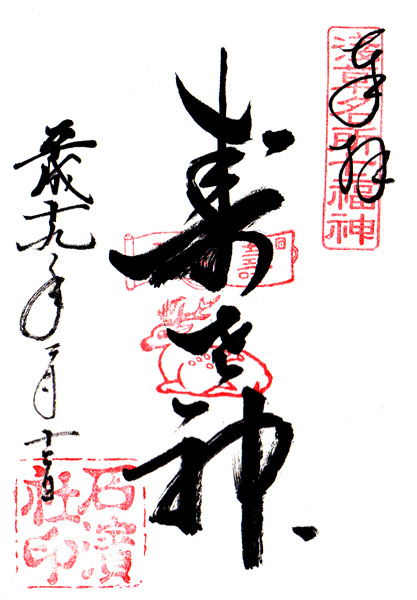 奉拝
浅草名所七福神
壽老神
平成十九年月十日
石濱
社印